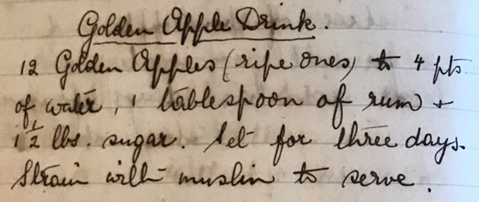 Golden Apple Drink.
12 Golden Apples (ripe ones) to 4 pts
of water, 1 tablespoon of rum +
1 1/2 lbs. sugar. Set for three days.
Strain with muslin to serve.